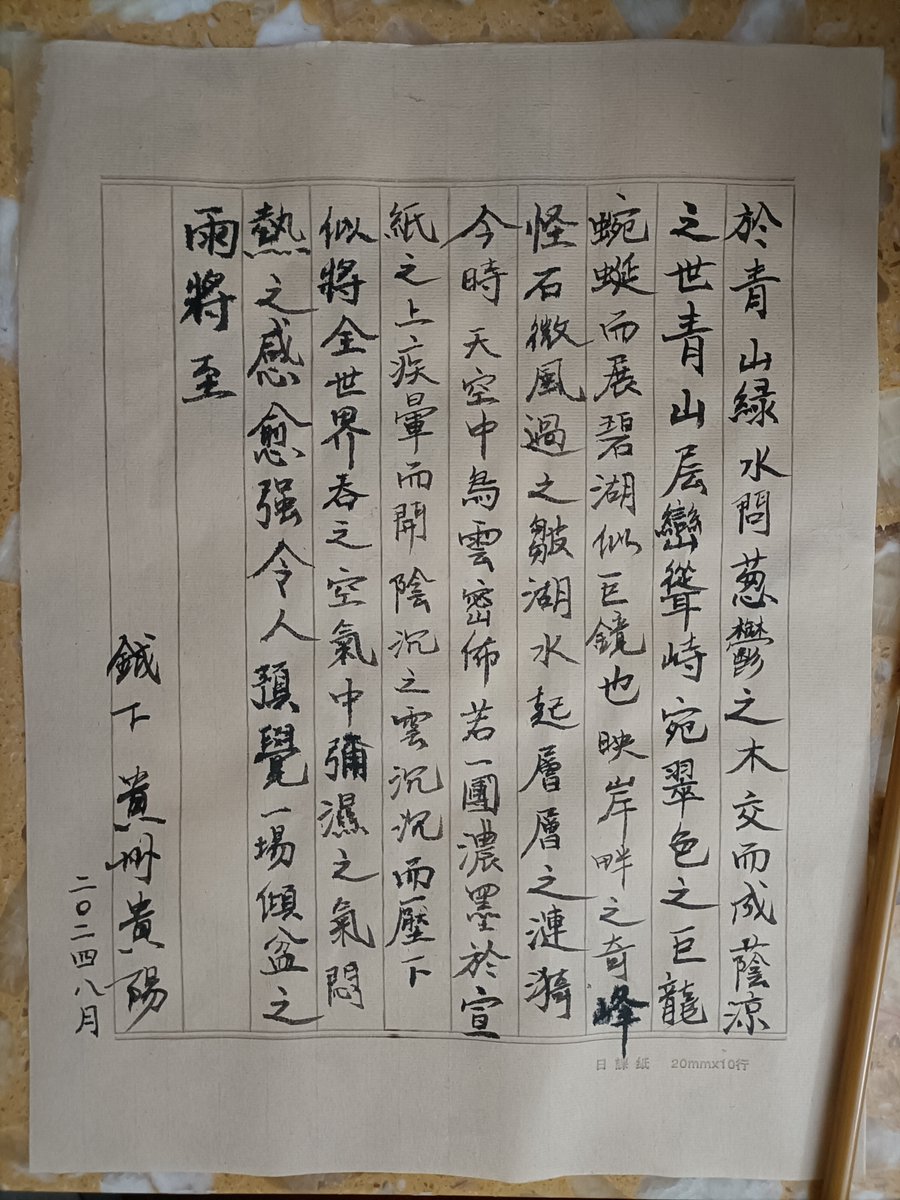 於青山緑水問葱鬱之木交而成蔭涼
之世青山层巒聳峙宛翠色之巨龍
蜿蜒而展碧湖似巨鏡也映岸畔之奇峰
怪石微風過之皺湖水起層層之漣漪
今時天空中烏雲密佈若一團濃墨於宣
紙之上疾暈而開陰沉之雲沉沉而壓下
似將全世界吞之空氣中彌濕之氣悶
熱之感愈强令人預覺一場傾盆之
雨將至
鉞下 貴州貴陽
二〇二四八月
日課纸 20mmx10行